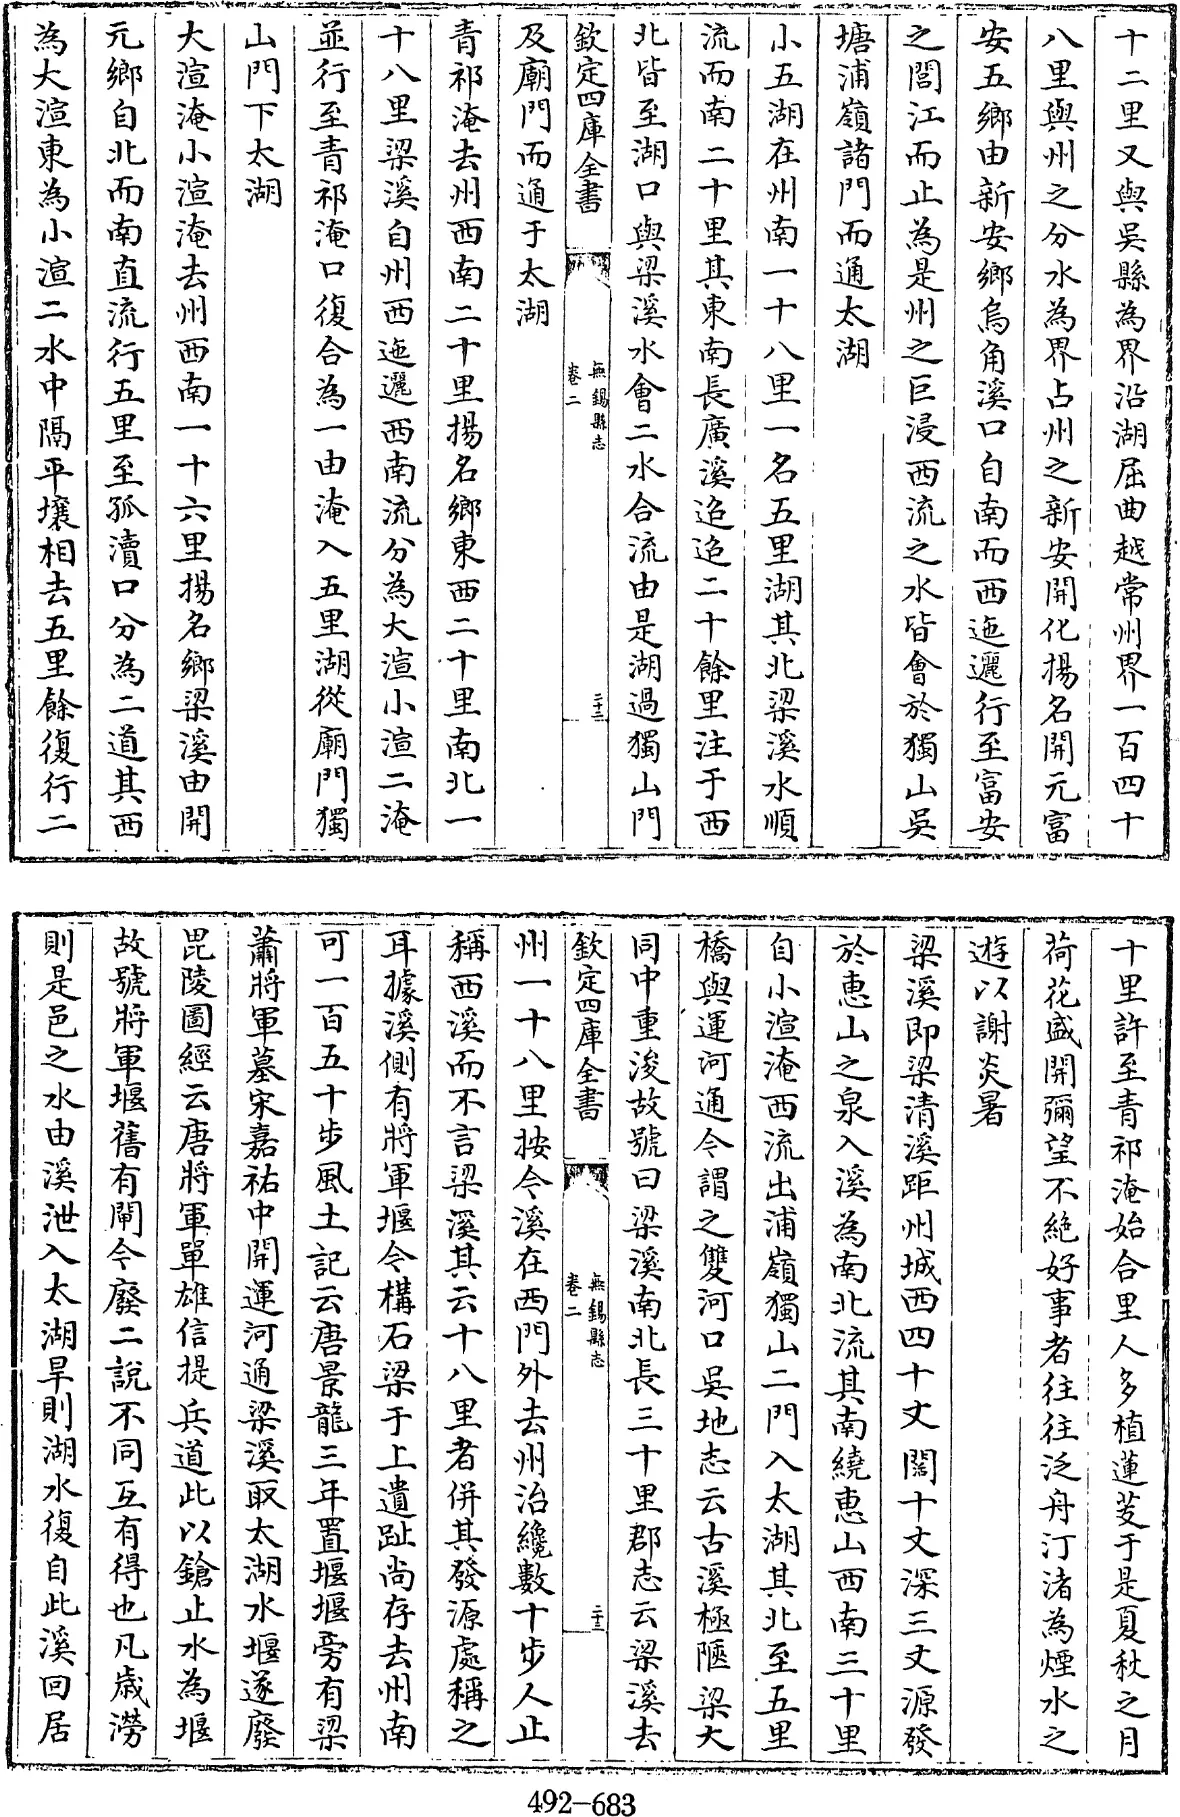 十二里又與吳縣為界沿湖屈曲越常州界一百四十
八里與州之分水為界占州之新安開化揚名開元富
安五鄉由新安鄉烏角溪口自南而西迤邐行至富安
之閭江而止為是州之巨浸西流之水皆會於獨山吳
塘浦嶺諸門而通太湖
小五湖在州南一十八里一名五里湖其北梁溪水順
流而南二十里其東南長廣溪迢迢二十餘里注于西
北皆至湖口與梁溪水會二水合流由是湖過獨山門
欽定四庫全書
無錫縣志
卷二
二十三
及廟門而通于太湖
青祁淹去州西南二十里揚名鄉東西二十里南北一
十八里梁溪自州西迤邐西南流分為大渲小渲二淹
並行至青祁淹口復合為一由淹入五里湖從廟門獨
山門下太湖
大渲淹小渲淹去州西南一十六里揚名鄉梁溪由開
元鄉自北而南直流行五里至孤瀆口分為二道其西
為大渲東為小渲二水中隔平壤相去五里餘復行二
十里許至青祁淹始合里人多植蓮芰于是夏秋之月
荷花盛開彌望不絶好事者往往泛舟汀渚為煙水之
遊以謝炎暑
梁溪即梁清溪距州城西四十丈闊十丈深三丈源發
於惠山之泉入溪為南北流其南繞惠山西南三十里
自小渲淹西流出浦嶺獨山二門入太湖其北至五里
橋與運河通今謂之雙河口吳地志云古溪極陿梁大
同中重浚故號曰梁溪南北長三十里郡志云梁溪去
欽定四庫全書
無錫縣志
卷二
二十三
州一十八里按今溪在西門外去州治纔數十步人止
稱西溪而不言梁溪其云十八里者併其發源處稱之
耳據溪側有將軍堰今構石梁于上遺趾尚存去州南
可一百五十步風土記云唐景龍三年置堰堰旁有梁
蕭將軍墓宋嘉祐中開運河通梁溪取太湖水堰遂廢
毘陵圖經云唐將軍單雄信提兵道此以鎗止水為堰
故號將軍堰舊有閘今廢二說不同互有得也凡歲澇
則是邑之水由溪泄入太湖旱則湖水復自此溪回居
492-683